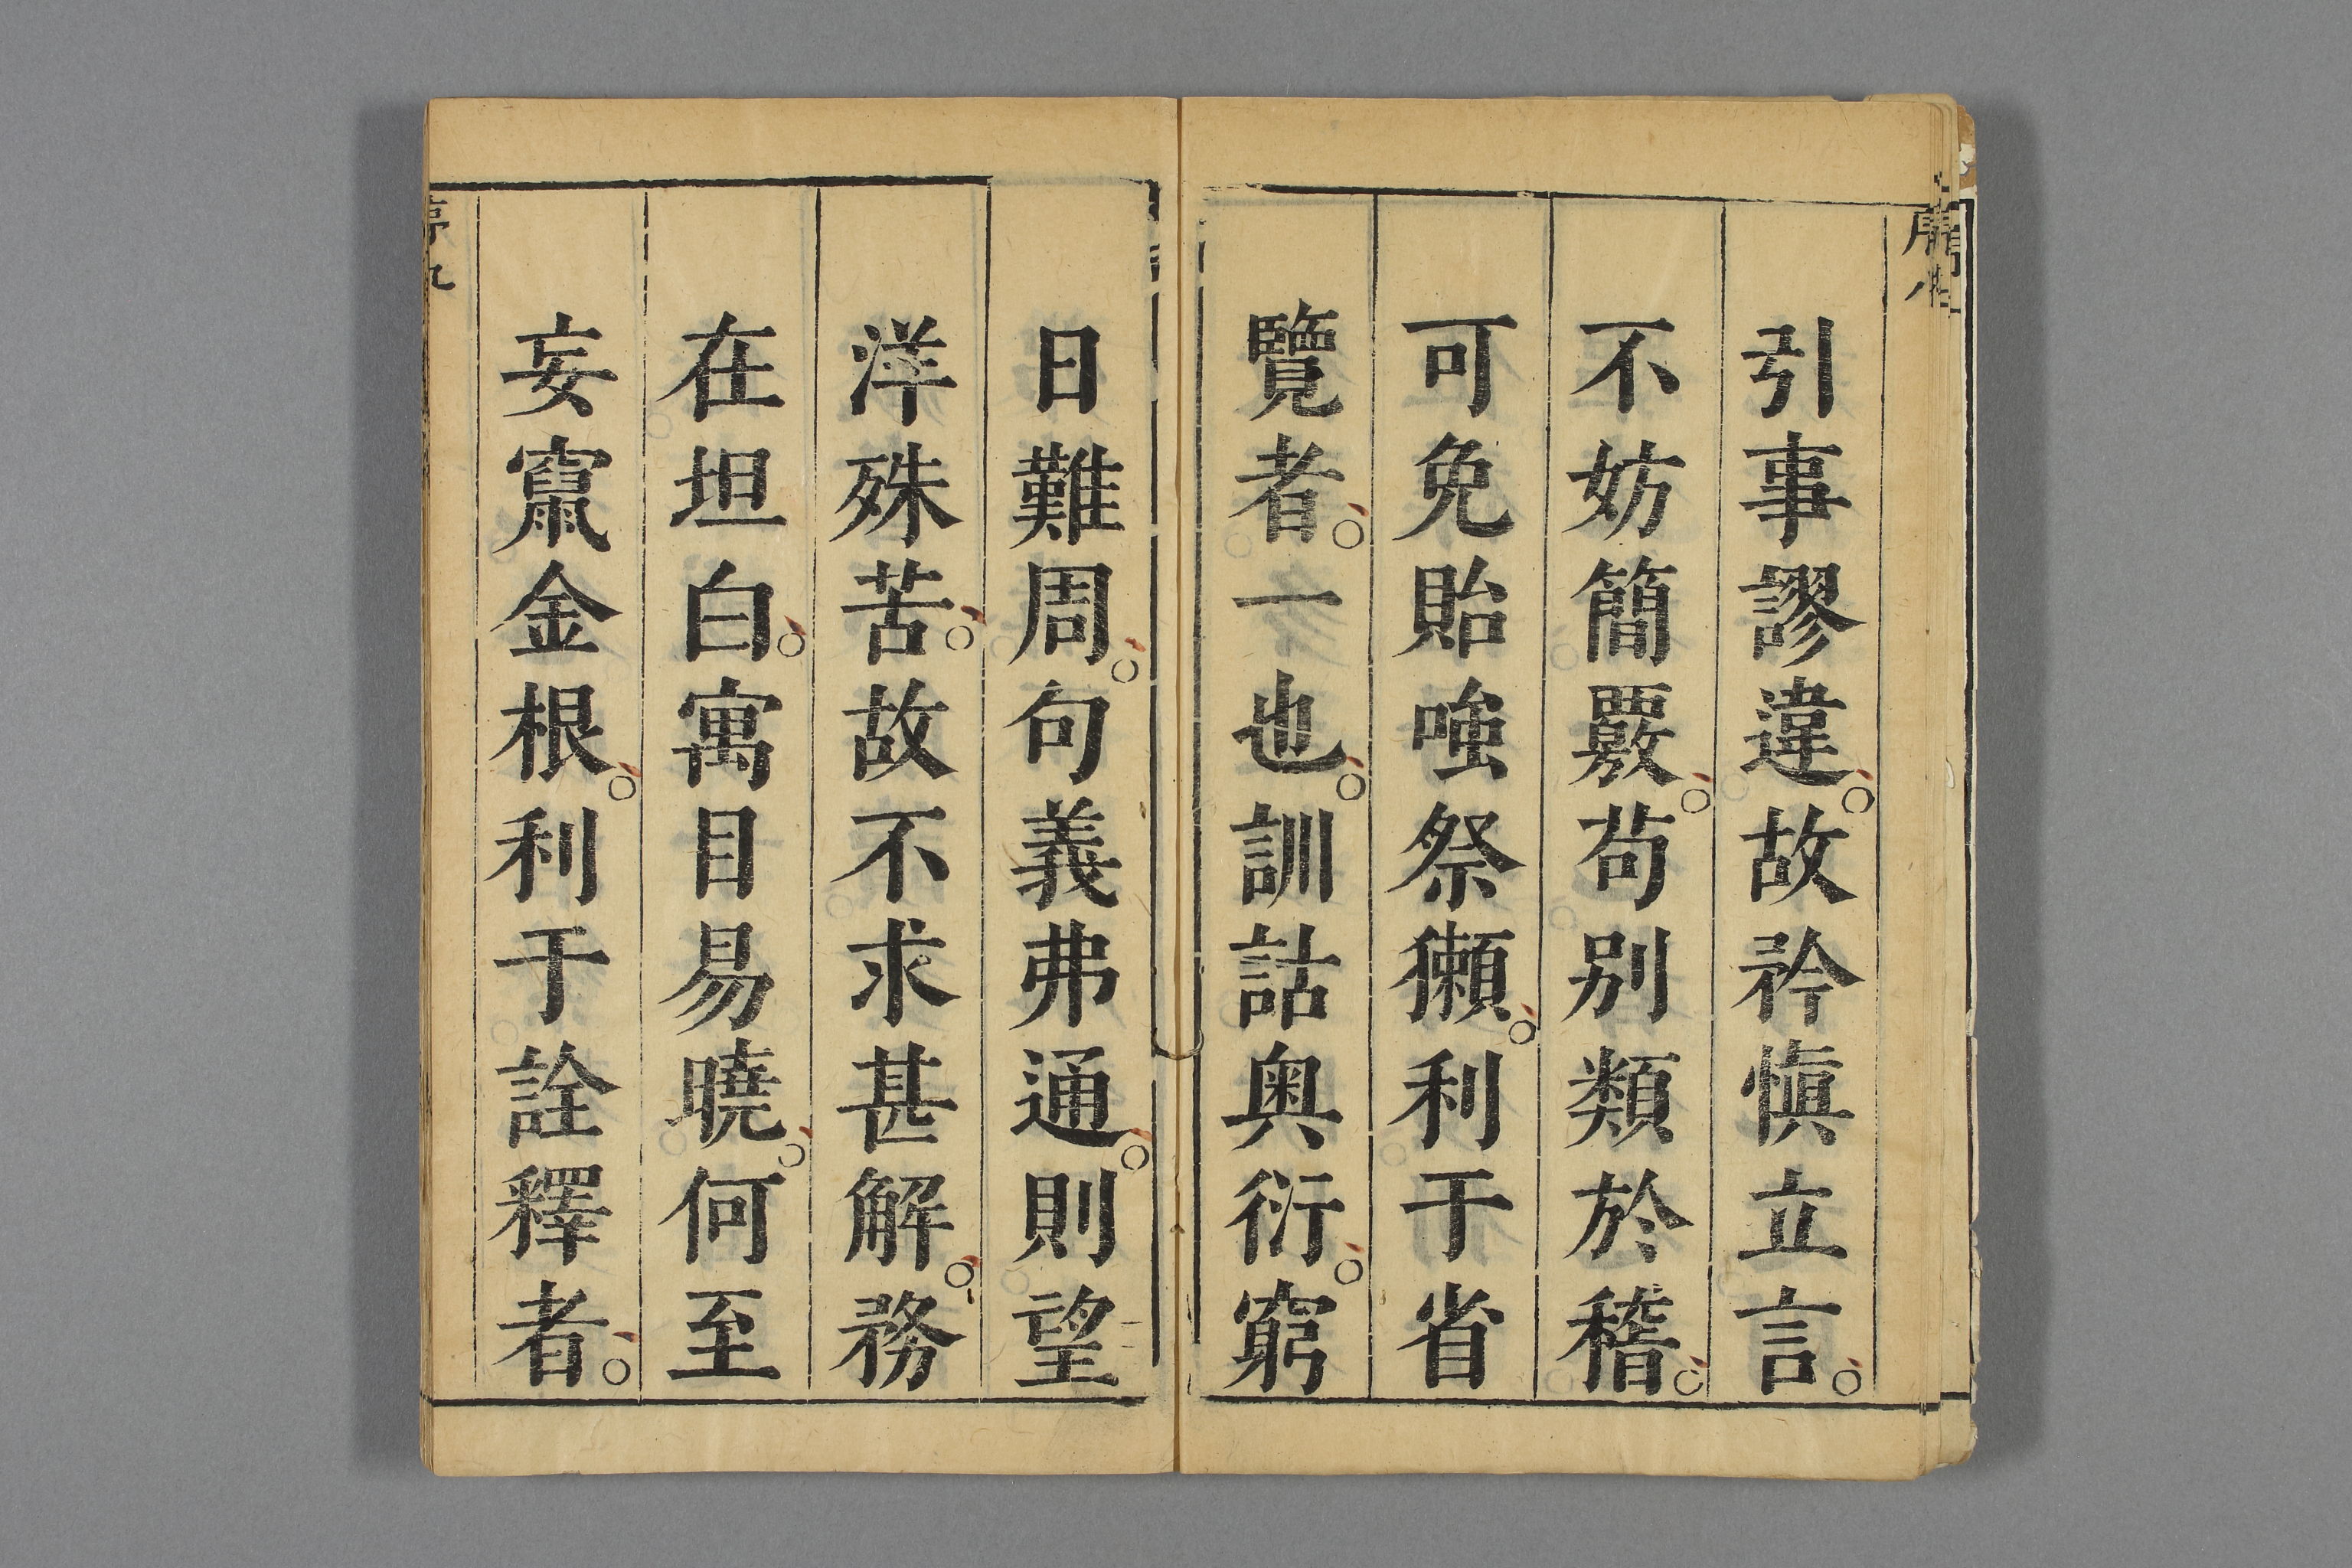 引事謬違。故矜慎立言。
不妨簡覈。苟别類於稽。
可免貽嗤祭獺。利于省
覽者。一也。訓詁奥衍。窮
日難周。句義弗通。則望
洋殊苦。故不求甚解。務
在坦白。寓目易曉。何至
妄竄金根。利于詮釋者。